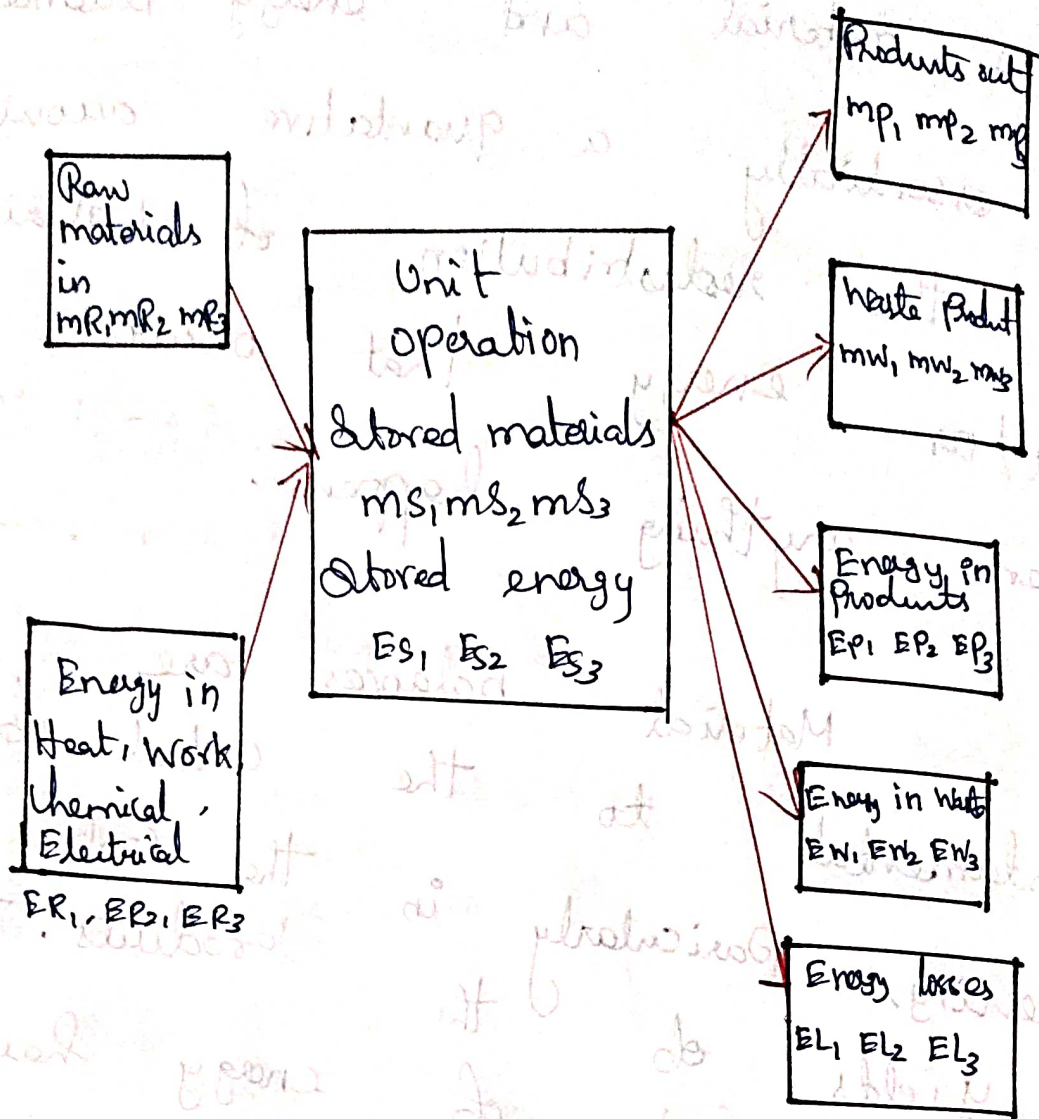 Raw
materials
in
mR₁ mR₂ mR₃
Energy in
Heat, Work
Chemical,
Electrical
ER₁, ER₂, ER₃
Unit
operation
Stored materials
mS₁ mS₂ mS₃
Stored energy
ES₁ ES₂ ES₃
Products out
mP₁ mP₂ mP₃
Waste Product
mW₁ mW₂ mW₃
Energy in
Products
EP₁ EP₂ EP₃
Energy in Waste
EW₁ EW₂ EW₃
Energy losses
EL₁ EL₂ EL₃